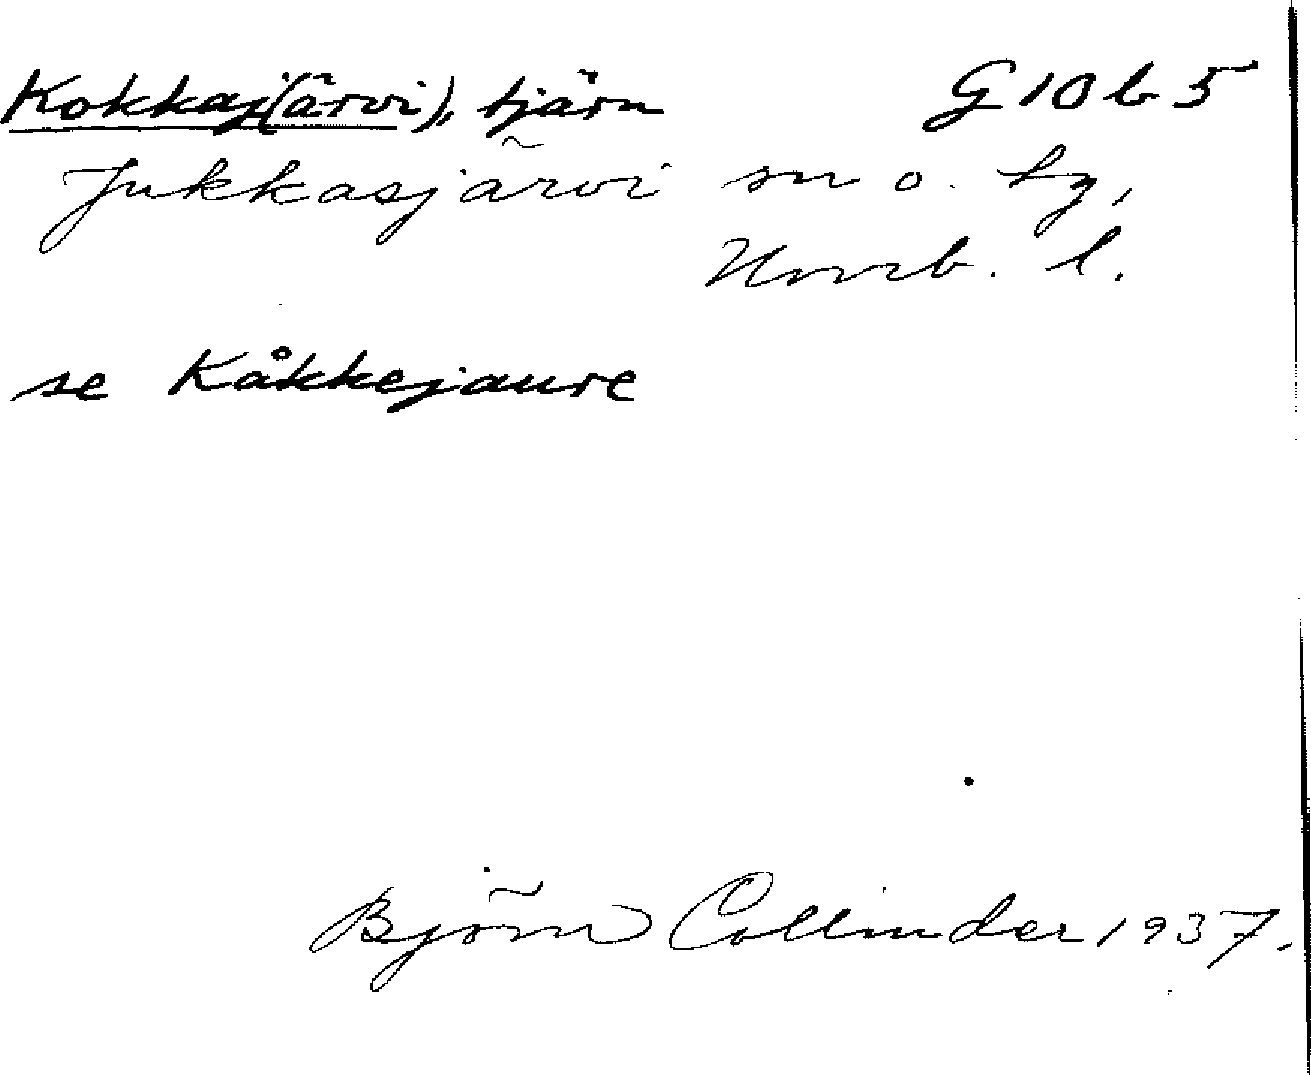 Kokkaj(ärvi), tjärn G10b5
Jukkasjärvi sn o. tg,
Norrb. l.
se Kåkkejaure
Björn Collinder 1937.